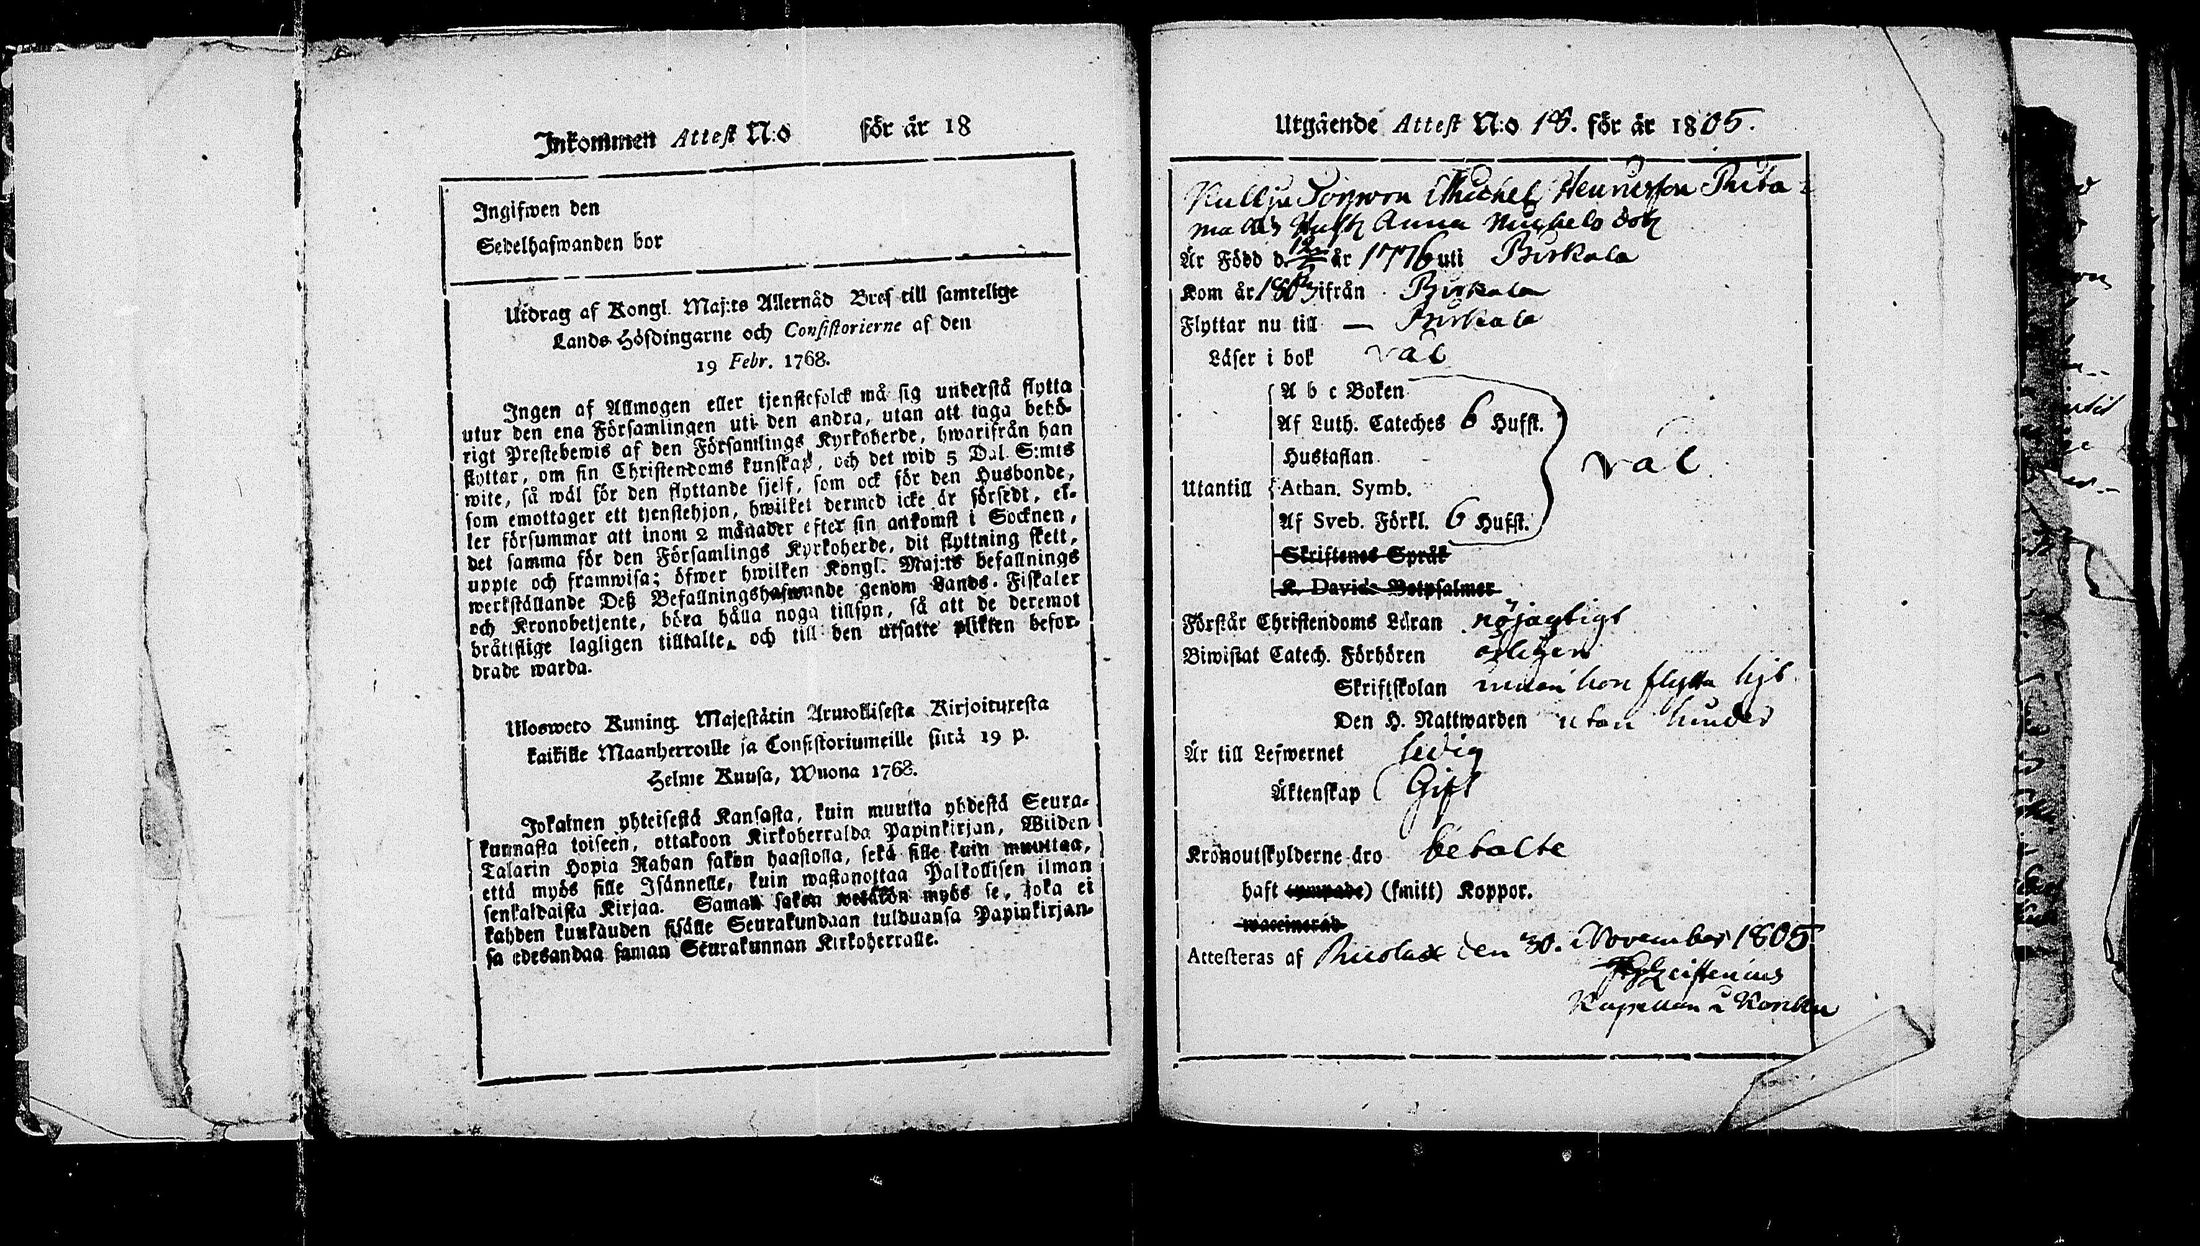 Inkommen Attest N:o för år 18
Ingifwen den
Sedelhafwanden bor
Utdrag af Kongl. Maj:ts Allernåd Bref till samtelige
Lands Höfdingarne och Consistorierne af den
19 Febr. 1768.
Ingen af Allmogen eller tjenstefolck må sig understå flytta
utur den ena Församlingen uti den andra, utan att taga behö-
rigt Prestebewis af den Församlings Kyrkoherde, hwarifrån han
flyttar, om sin Christendoms kunskap, och det wid 5 Dal. S:mts
wite, så wäl för den flyttande sjelf, som ock för den Husbonde,
som emottager ett tjenstehjon, hwilket dermed icke är försedt, el-
ler försummar att inom 2 månader efter sin ankomst i Socknen,
det samma för den Församlings Kyrkoherde, dit flyttning skett,
uppte och framwisa; öfwer hwilken Kongl. Maj:ts befallnings
werkställande Deß Befallningshafwande genom Lands-Fiskaler
och Kronobetjente, böra hålla noga tillsyn, så att de deremot
bråttslige lagligen tilltalte, och till den utsatte plikten befor-
drade warda.
Ulosweto Kuning. Majestätin Armollisesta Kirjoituxesta
kaikille Maanherroille ja Consistoriumeille siitä 19 p.
Helme Kuusa, Wuona 1768.
Jokainen yhteisestä Kansasta, kuin muutta yhdestä Seura-
kunnasta toiseen, ottakoon Kirkoherralda Papinkirjan, Wiiden
Talarin Hopia Rahan sakon haastolla, sekä sille kuin muuttaa,
että myös sille Isännelle, kuin wastanottaa Palkollisen ilman
senkaldaista Kirjaa. Saman sakon wetäkön myös se, joka ei
kahden kuukauden sisälle Seurakundaan tulduansa Papinkirjan-
sa edesandaa saman Seurakunnan Kirkoherralle.
Utgående Attest N:o 18. för år 1805.
Michel Henricsson
Anna Michels dotr
Är Född d. 12 år 1776 uti Birkala
Kom år 1803 ifrån Birkala
Flyttar nu till — Birkala
Läser i bok väl
A b c Boken
Af Luth. Cateches 6 Hufst.
Hustaflan
väl
Utantill Athan. Symb.
Af Sveb. Förkl. 6 Hufst.
Skriftenes Språk
K. Davids Botpsalmer
Förstår Christendoms Läran nöjagtigt
Biwistat Catech. Förhören årligen
Skriftskolan innan hon flytta hit
Den H. Nattwarden utan hinder
Är till Lefwernet ledig
Äktenskap Gift
Kronoutskylderne äro betalte
haft (ympade) (smitt) Koppor.
waccinerad
Attesteras af den 30. November 1805
Kapellan